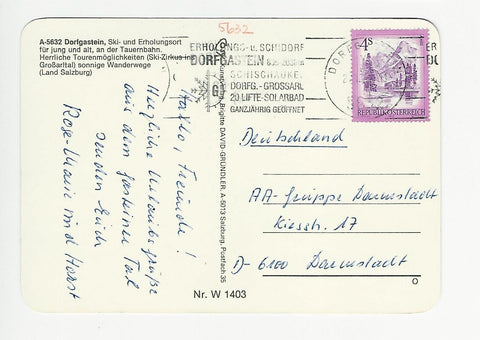 5632
A-5632 Dorfgastein, Ski- und Erholungsort
für jung und alt, an der Tauernbahn.
Herrliche Tourenmöglichkeiten (Ski-Zirkus in
Großarltal) sonnige Wanderwege
(Land Salzburg)
Hallo, Freunde!
Herzliche Urlaubsgrüße
aus dem Gasteiner Tal
senden Euch
Rose-Marie und Horst
BRIGITTE DAVID-GRÜNDLER, A-5013 Salzburg, Postfach 35
ERHOLUNGS- u. SCHIDORF
DORFGASTEIN
SCHISCHAUKEL
DORFG.-GROSSARL
20 LIFTE-SOLARBAD
GANZJÄHRIG GEÖFFNET
DORFG
4S
REPUBLIK ÖSTERREICH
Deutschland
AA-Gruppe Darmstadt
Kiesstr. 17
D-6100 Darmstadt
Nr. W 1403